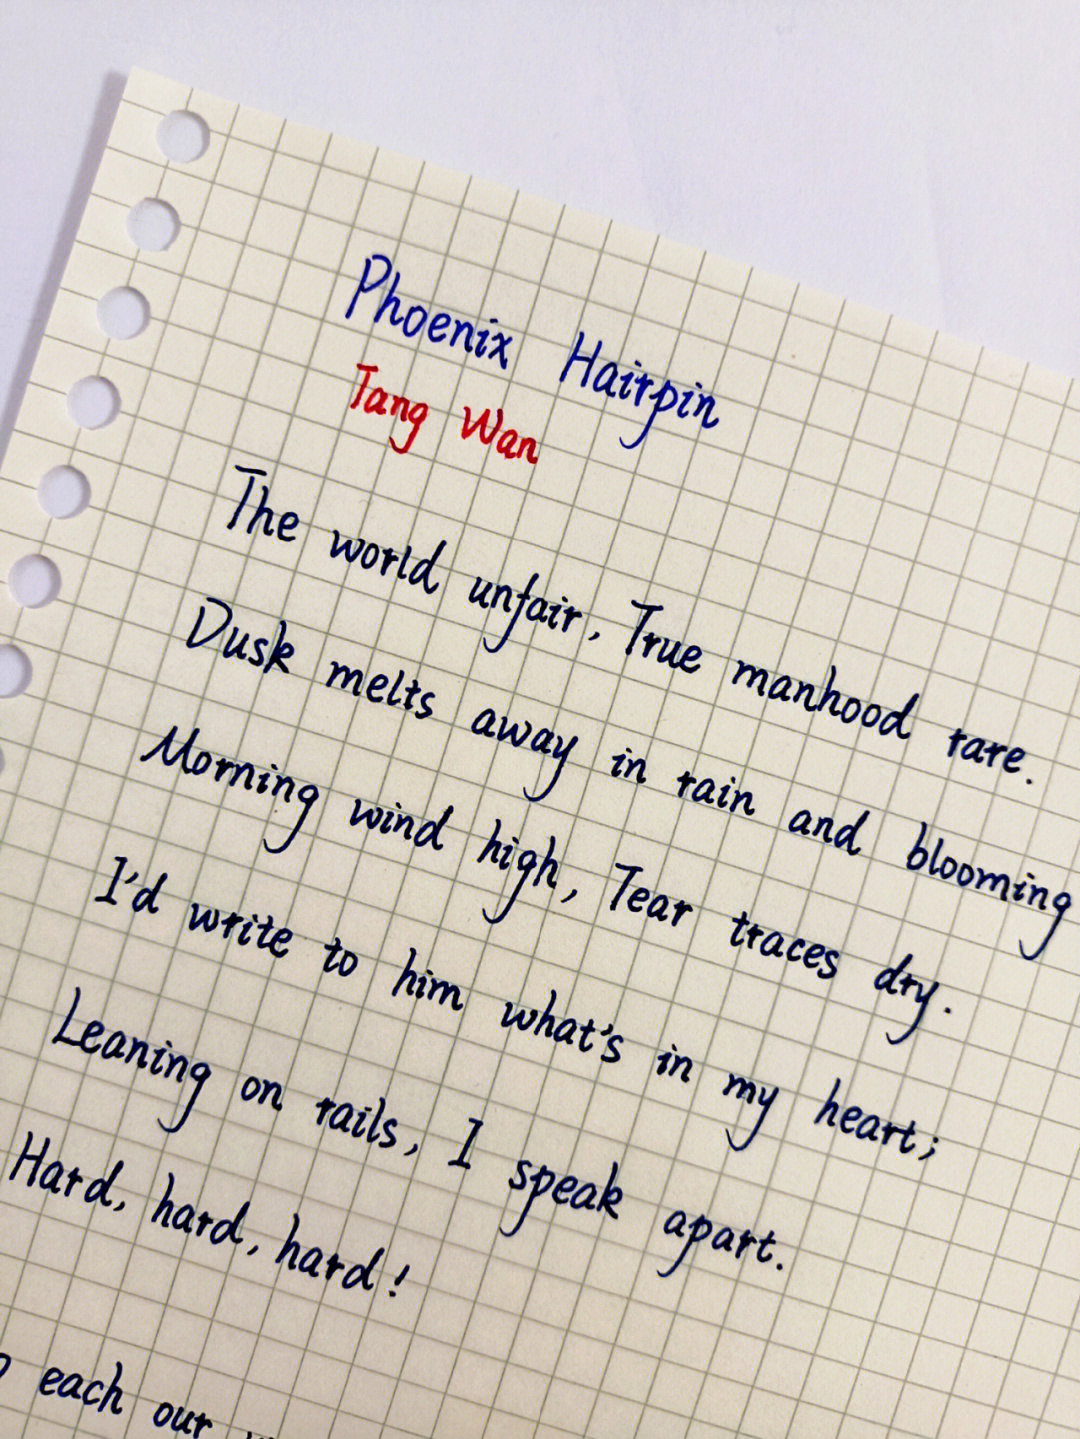 Phoenix Hairpin
Tang Wan
The world unfair, True manhood rare.
Dusk melts away in rain and blooming
Morning wind high, Tear traces dry.
I'd write to him what's in my heart;
Leaning on rails, I speak apart.
Hard, hard, hard!
each our